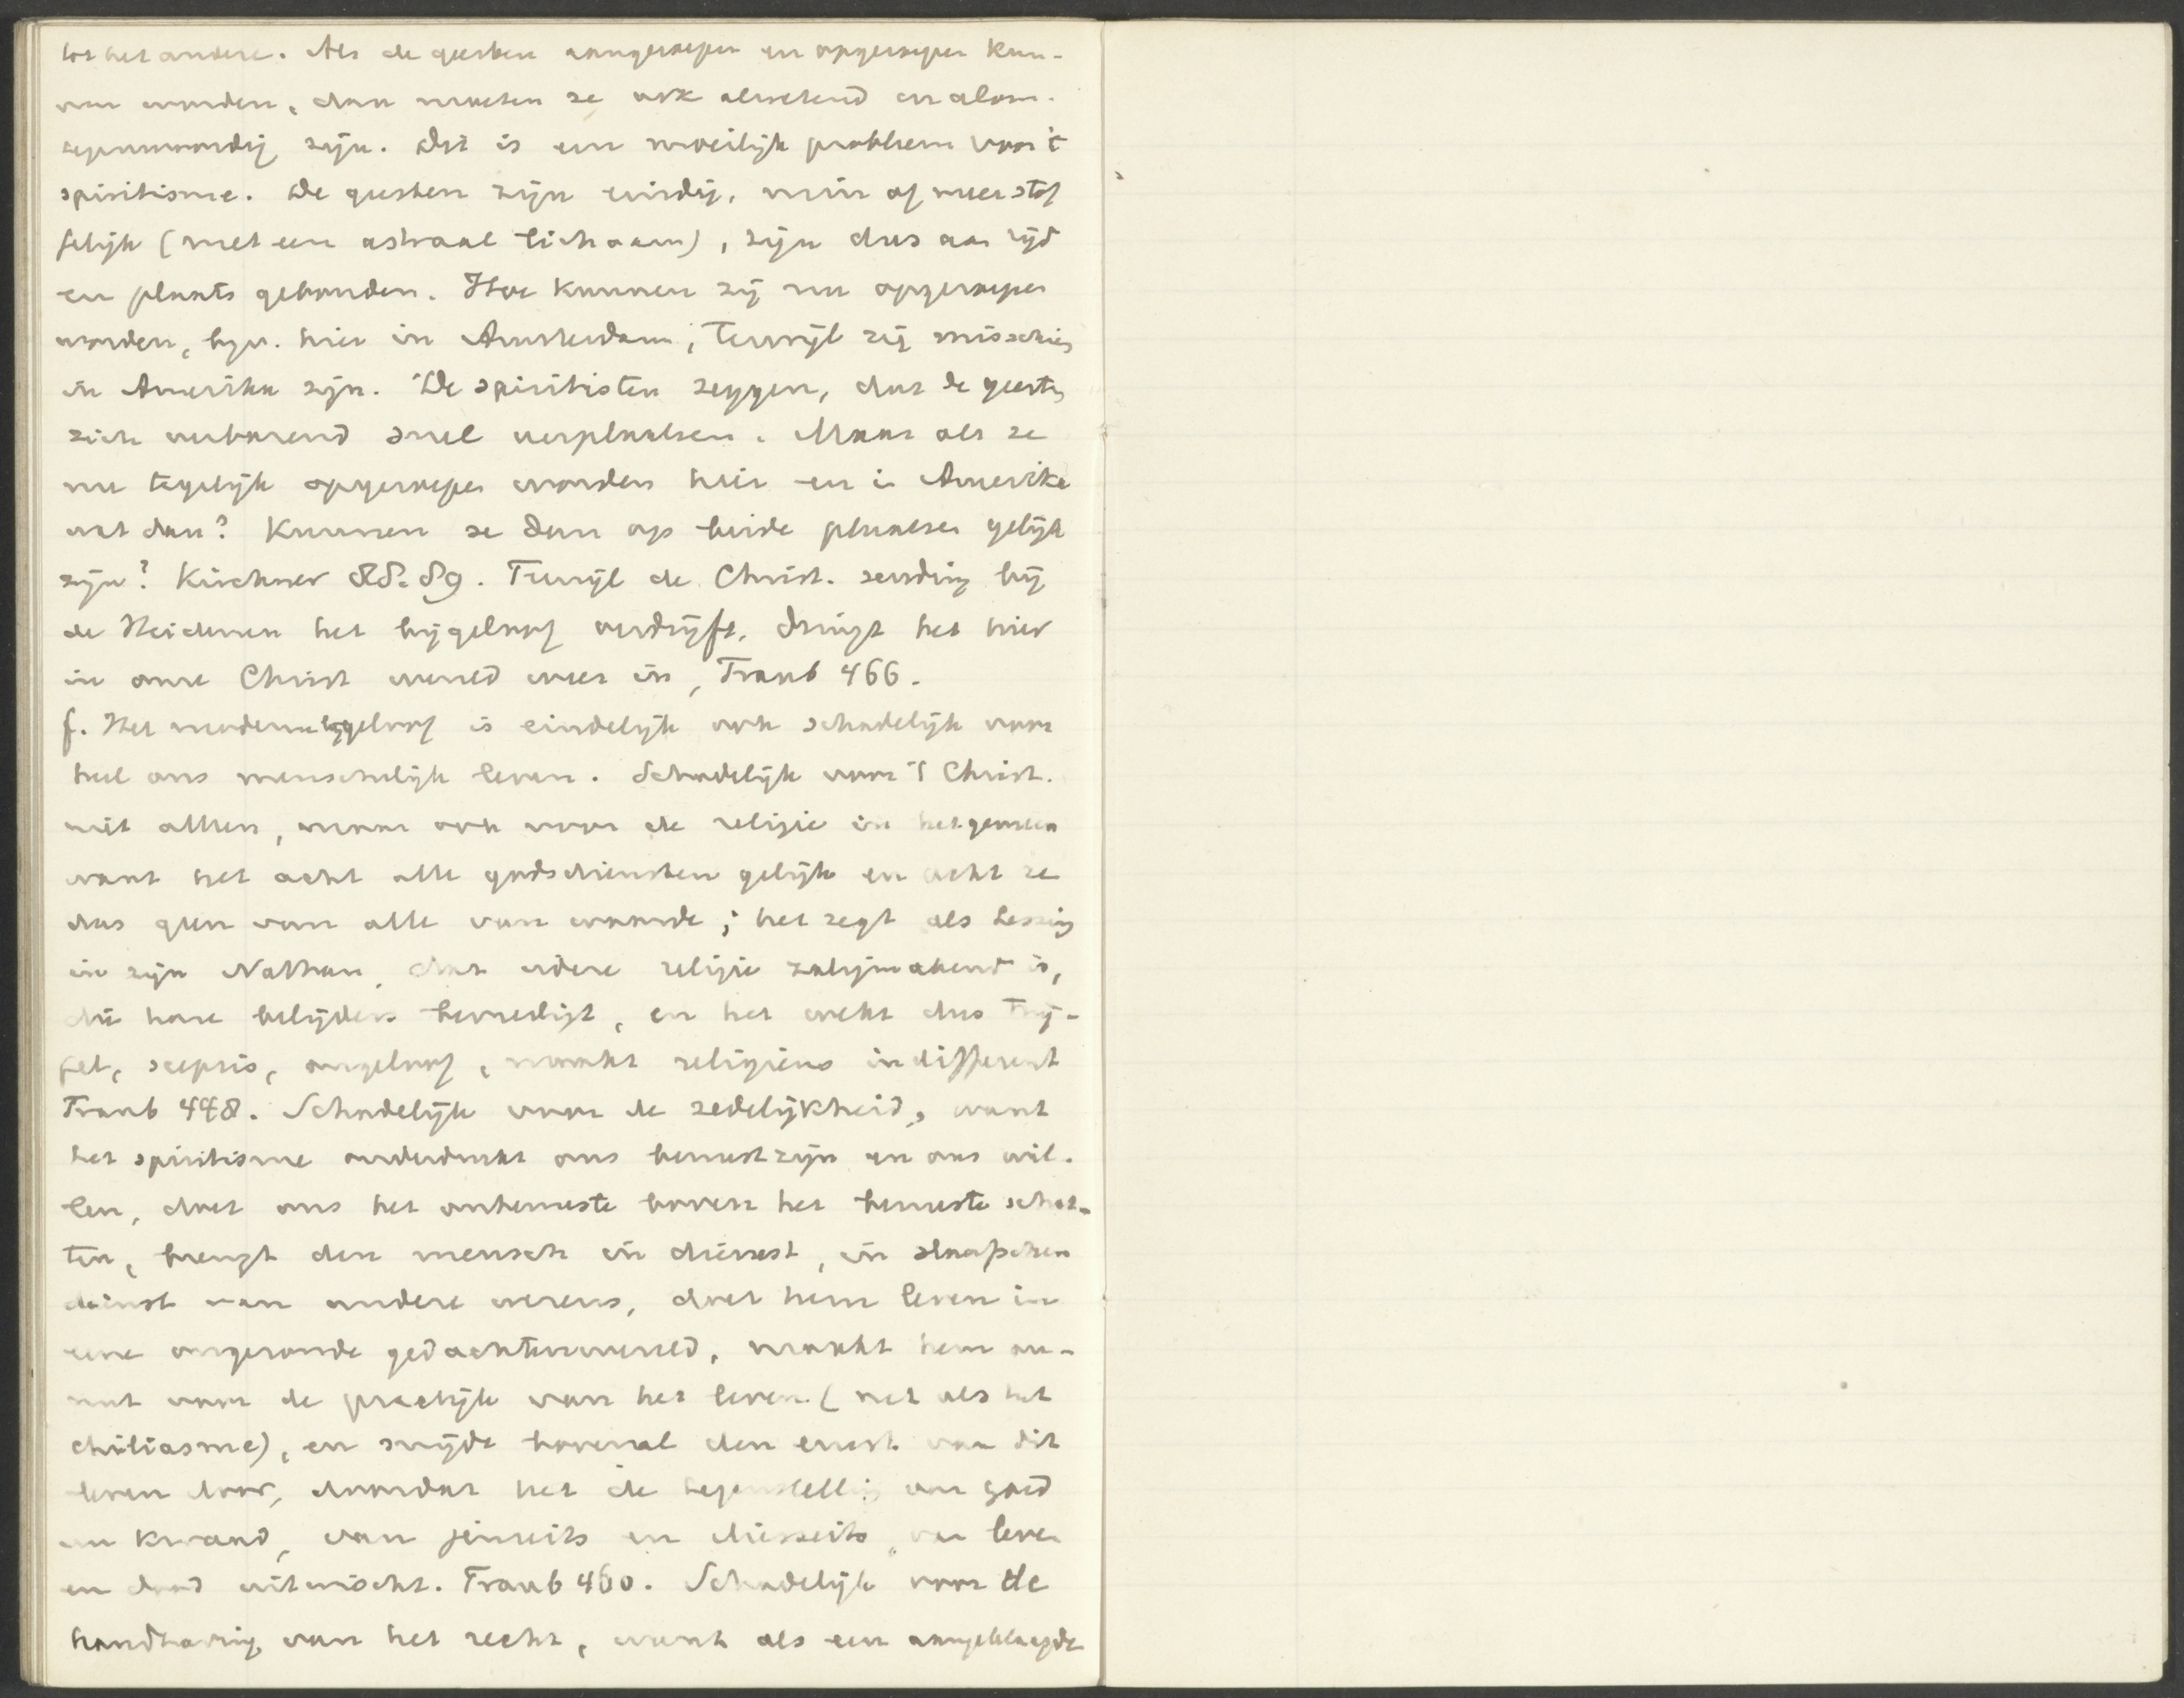 tot het andere. Als de geesten aangeroepen en opgeroepen kun-
nen worden, dan moeten ze ook alwetend en alom-
tegenwoordig zijn. Dit is een moeilijk probleem voor 't
spiritisme. De geesten zijn eindig, min of meer stof
felijk (met een astraal lichaam), zijn dus aan tijd
en plaats gebonden. Hoe kunnen zij nu opgeroepen
worden, bijv. hier in Amsterdam, terwijl zij misschien
in Amerika zijn. De spiritisten zeggen, dat de geesten
zich verbazend snel verplaatsen. Maar als ze
nu tegelijk opgeroepen worden hier en in Amerika
wat dan? Kunnen ze dan op beide plaatsen gelijk
zijn? Kirchner 88.89. Terwijl de Christ. zending bij
de Heidenen het bijgeloof verdrijft, dringt het hier
in onze Christ wereld weer in, Traub 466.
f. Het moderne bijgeloof is eindelijk ook schadelijk voor
heel ons menschelijk leven. Schadelijk voor 't Christ.
niet alleen, maar ook voor de religie in het gemeen
want het acht alle godsdiensten gelijk en acht ze
dus geen van alle van waarde; het zegt als Lessing
in zijn Nathan, dat iedere religie zaligmakend is,
die hare belijders bevredigt, en het wekt dus twij-
fel, scepsis, ongeloof, maakt religieus indifferent
Traub 448. Schadelijk voor de zedelijkheid, want
het spiritisme onderdrukt ons bewustzijn en ons wil-
len, doet ons het onbewuste boven het bewuste schat-
ten, brengt den mensch in dienst, in slaafschen
dienst van andere wezens, doet hem leven in
eene ongezonde gedachtenwereld, maakt hem on-
nut voor de practijk van het leven (net als het
chiliasme), en snijdt bovenal den ernst van dit
leven door, doordat het de tegenstelling van goed
en kwaad, van jenseits en diesseits, van leven
en dood uitwischt. Traub 460. Schadelijk voor de
handhaving van het recht, want als een aangeklaagde